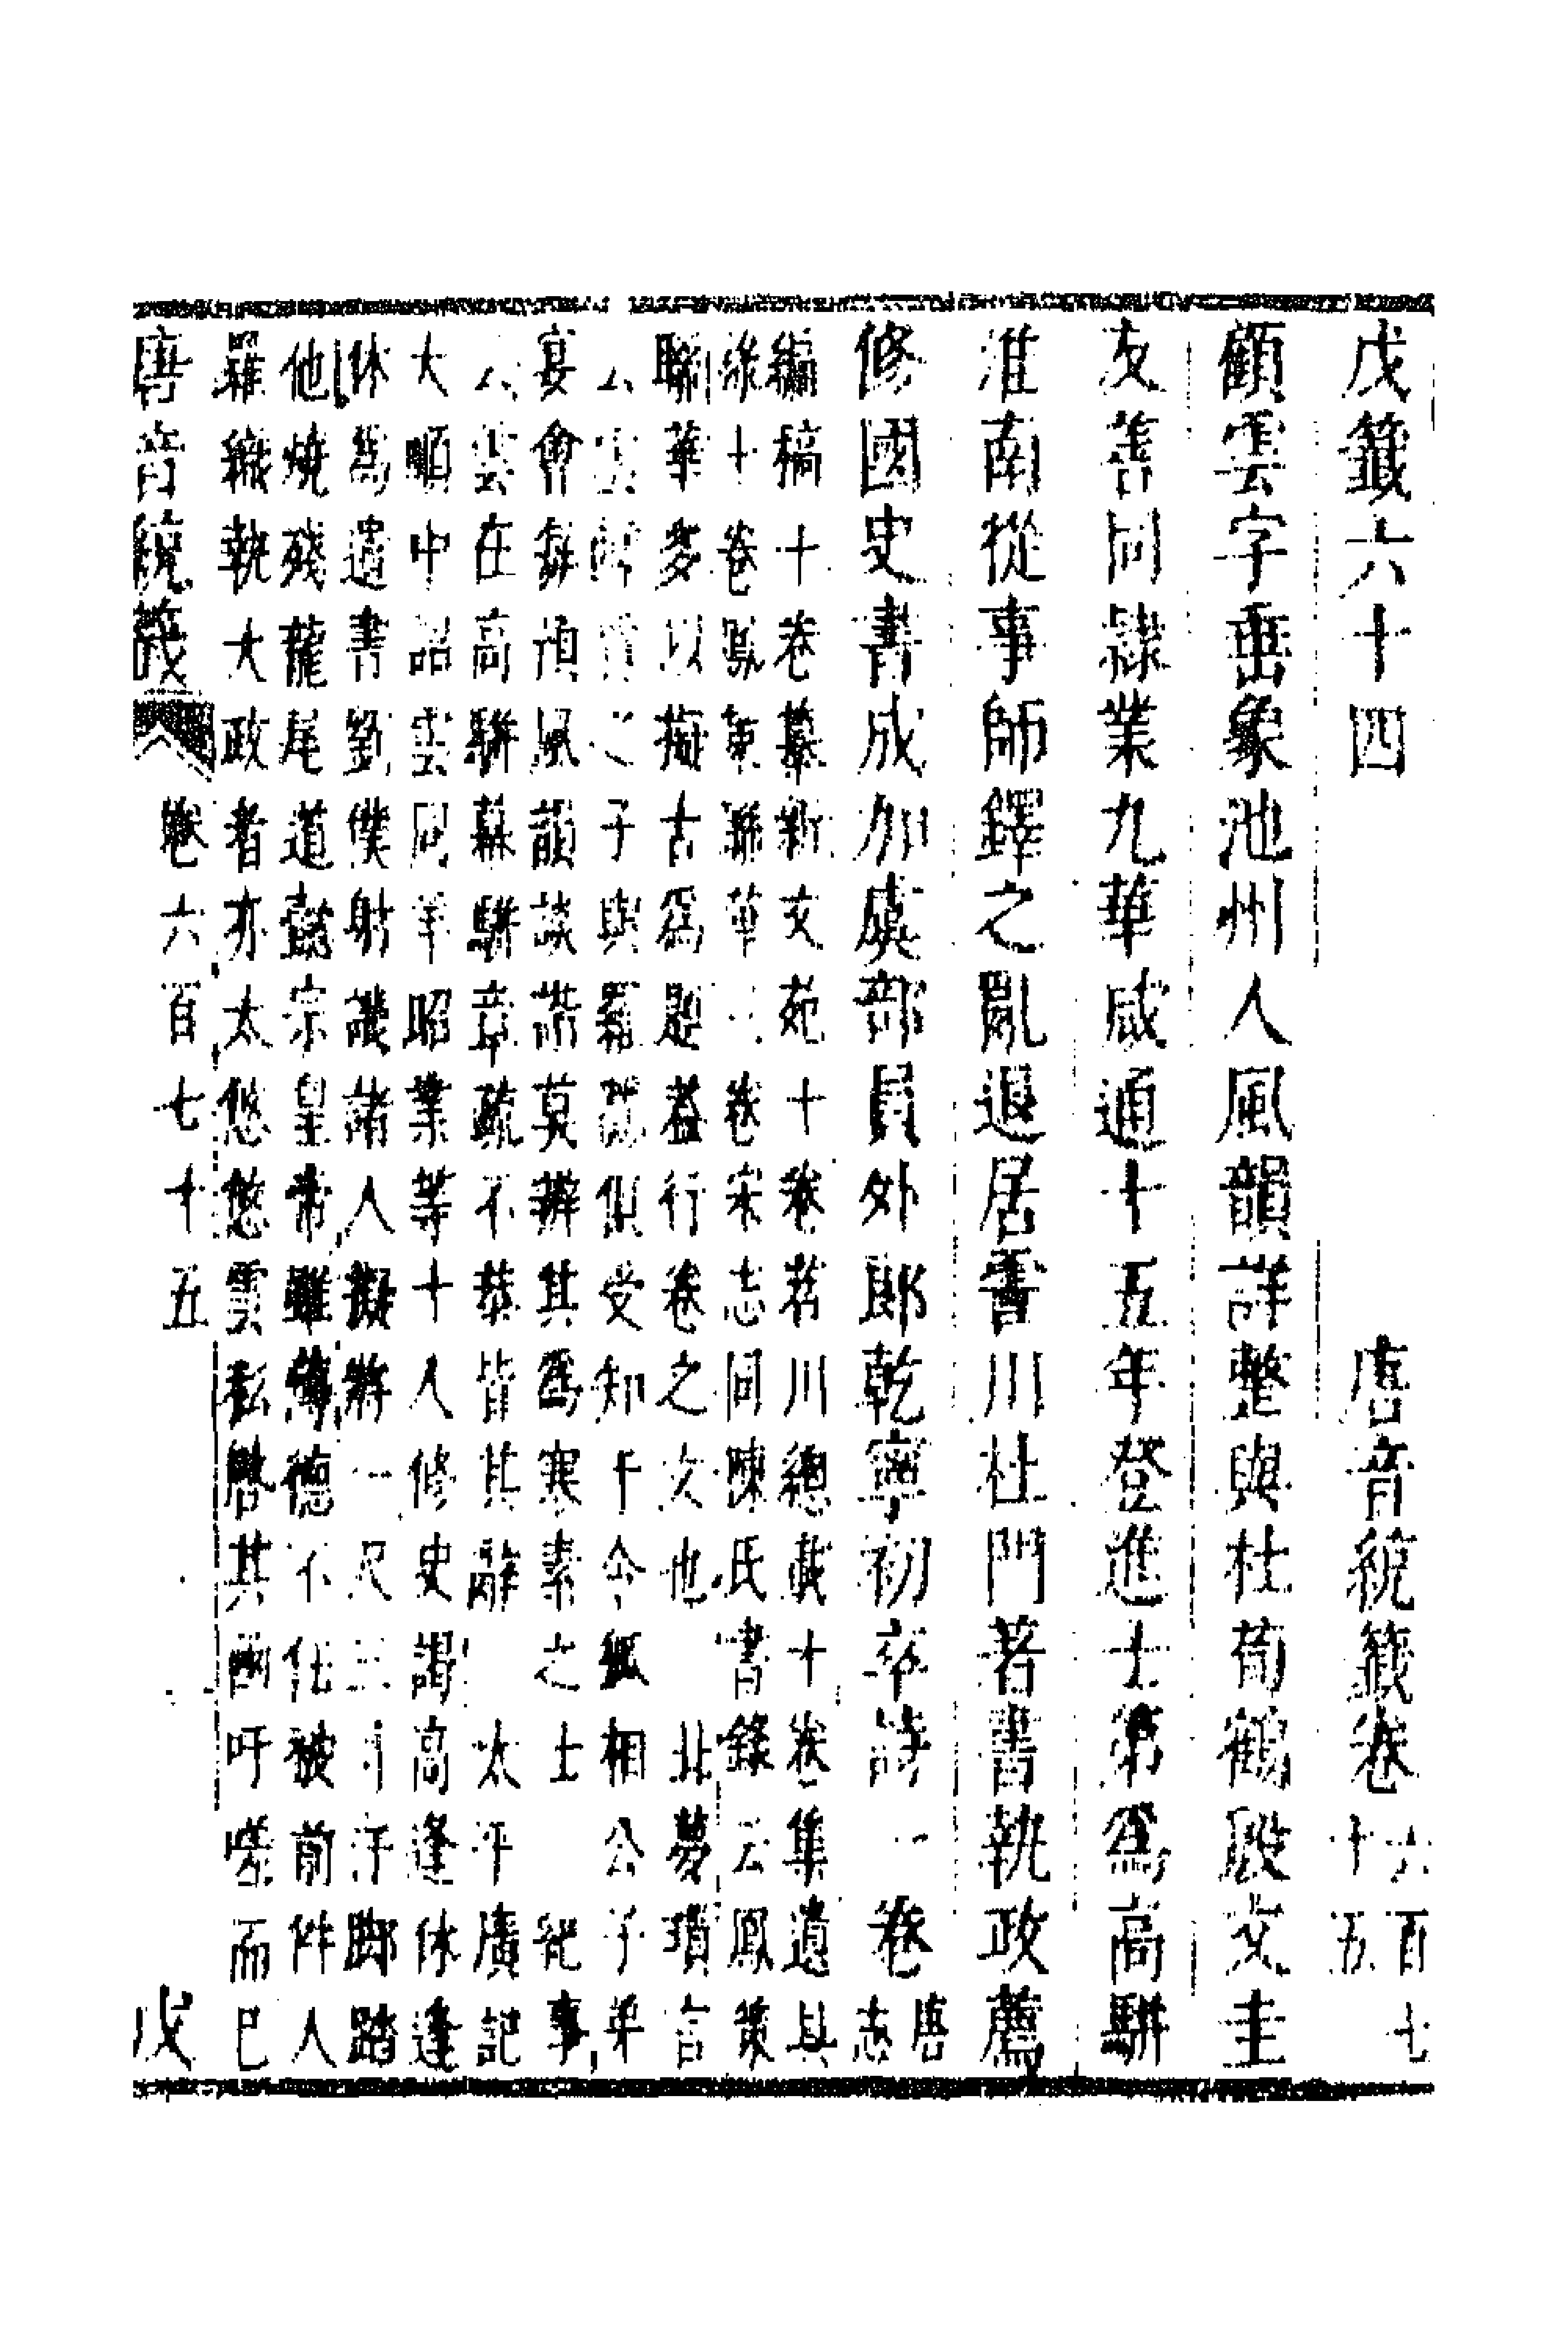 戊籤六十四　唐音統籤卷六百七十五
顧雲字垂象池州人風韻詳整與杜荀鶴殷文圭
友善同隸業九華咸通十五年登進士第爲高駢
淮南從事師鐸之亂退居霅川杜門著書執政薦
修國史書成加虞部員外郎乾寧初卒詩一卷唐志
編稿十卷纂新文苑十卷苕川總載十卷集遺具
錄十卷鳳策聯華三卷宋志同陳氏書錄云鳳策
聯華多以擬古爲題蓋行卷之文也　北夢瑣言
云雲鹺賈之子與羅隱俱受知于令狐相公子弟
宴會每預風韻談諧莫辨其爲寒素之士　紀事
云雲在高駢幕駢章疏不恭皆其辭　太平廣記
大順中詔雲同羊昭業等十人修史謁高逢休逢
休爲遺書劉僕射譏諸人擬將一尺三寸汗脚踏
他燒殘龍尾道懿宗皇帝雖薄德不任被前件人
羅織執大政者亦太悠悠雲私啓其函吁嗟而已
唐音統籤　卷六百七十五　戊